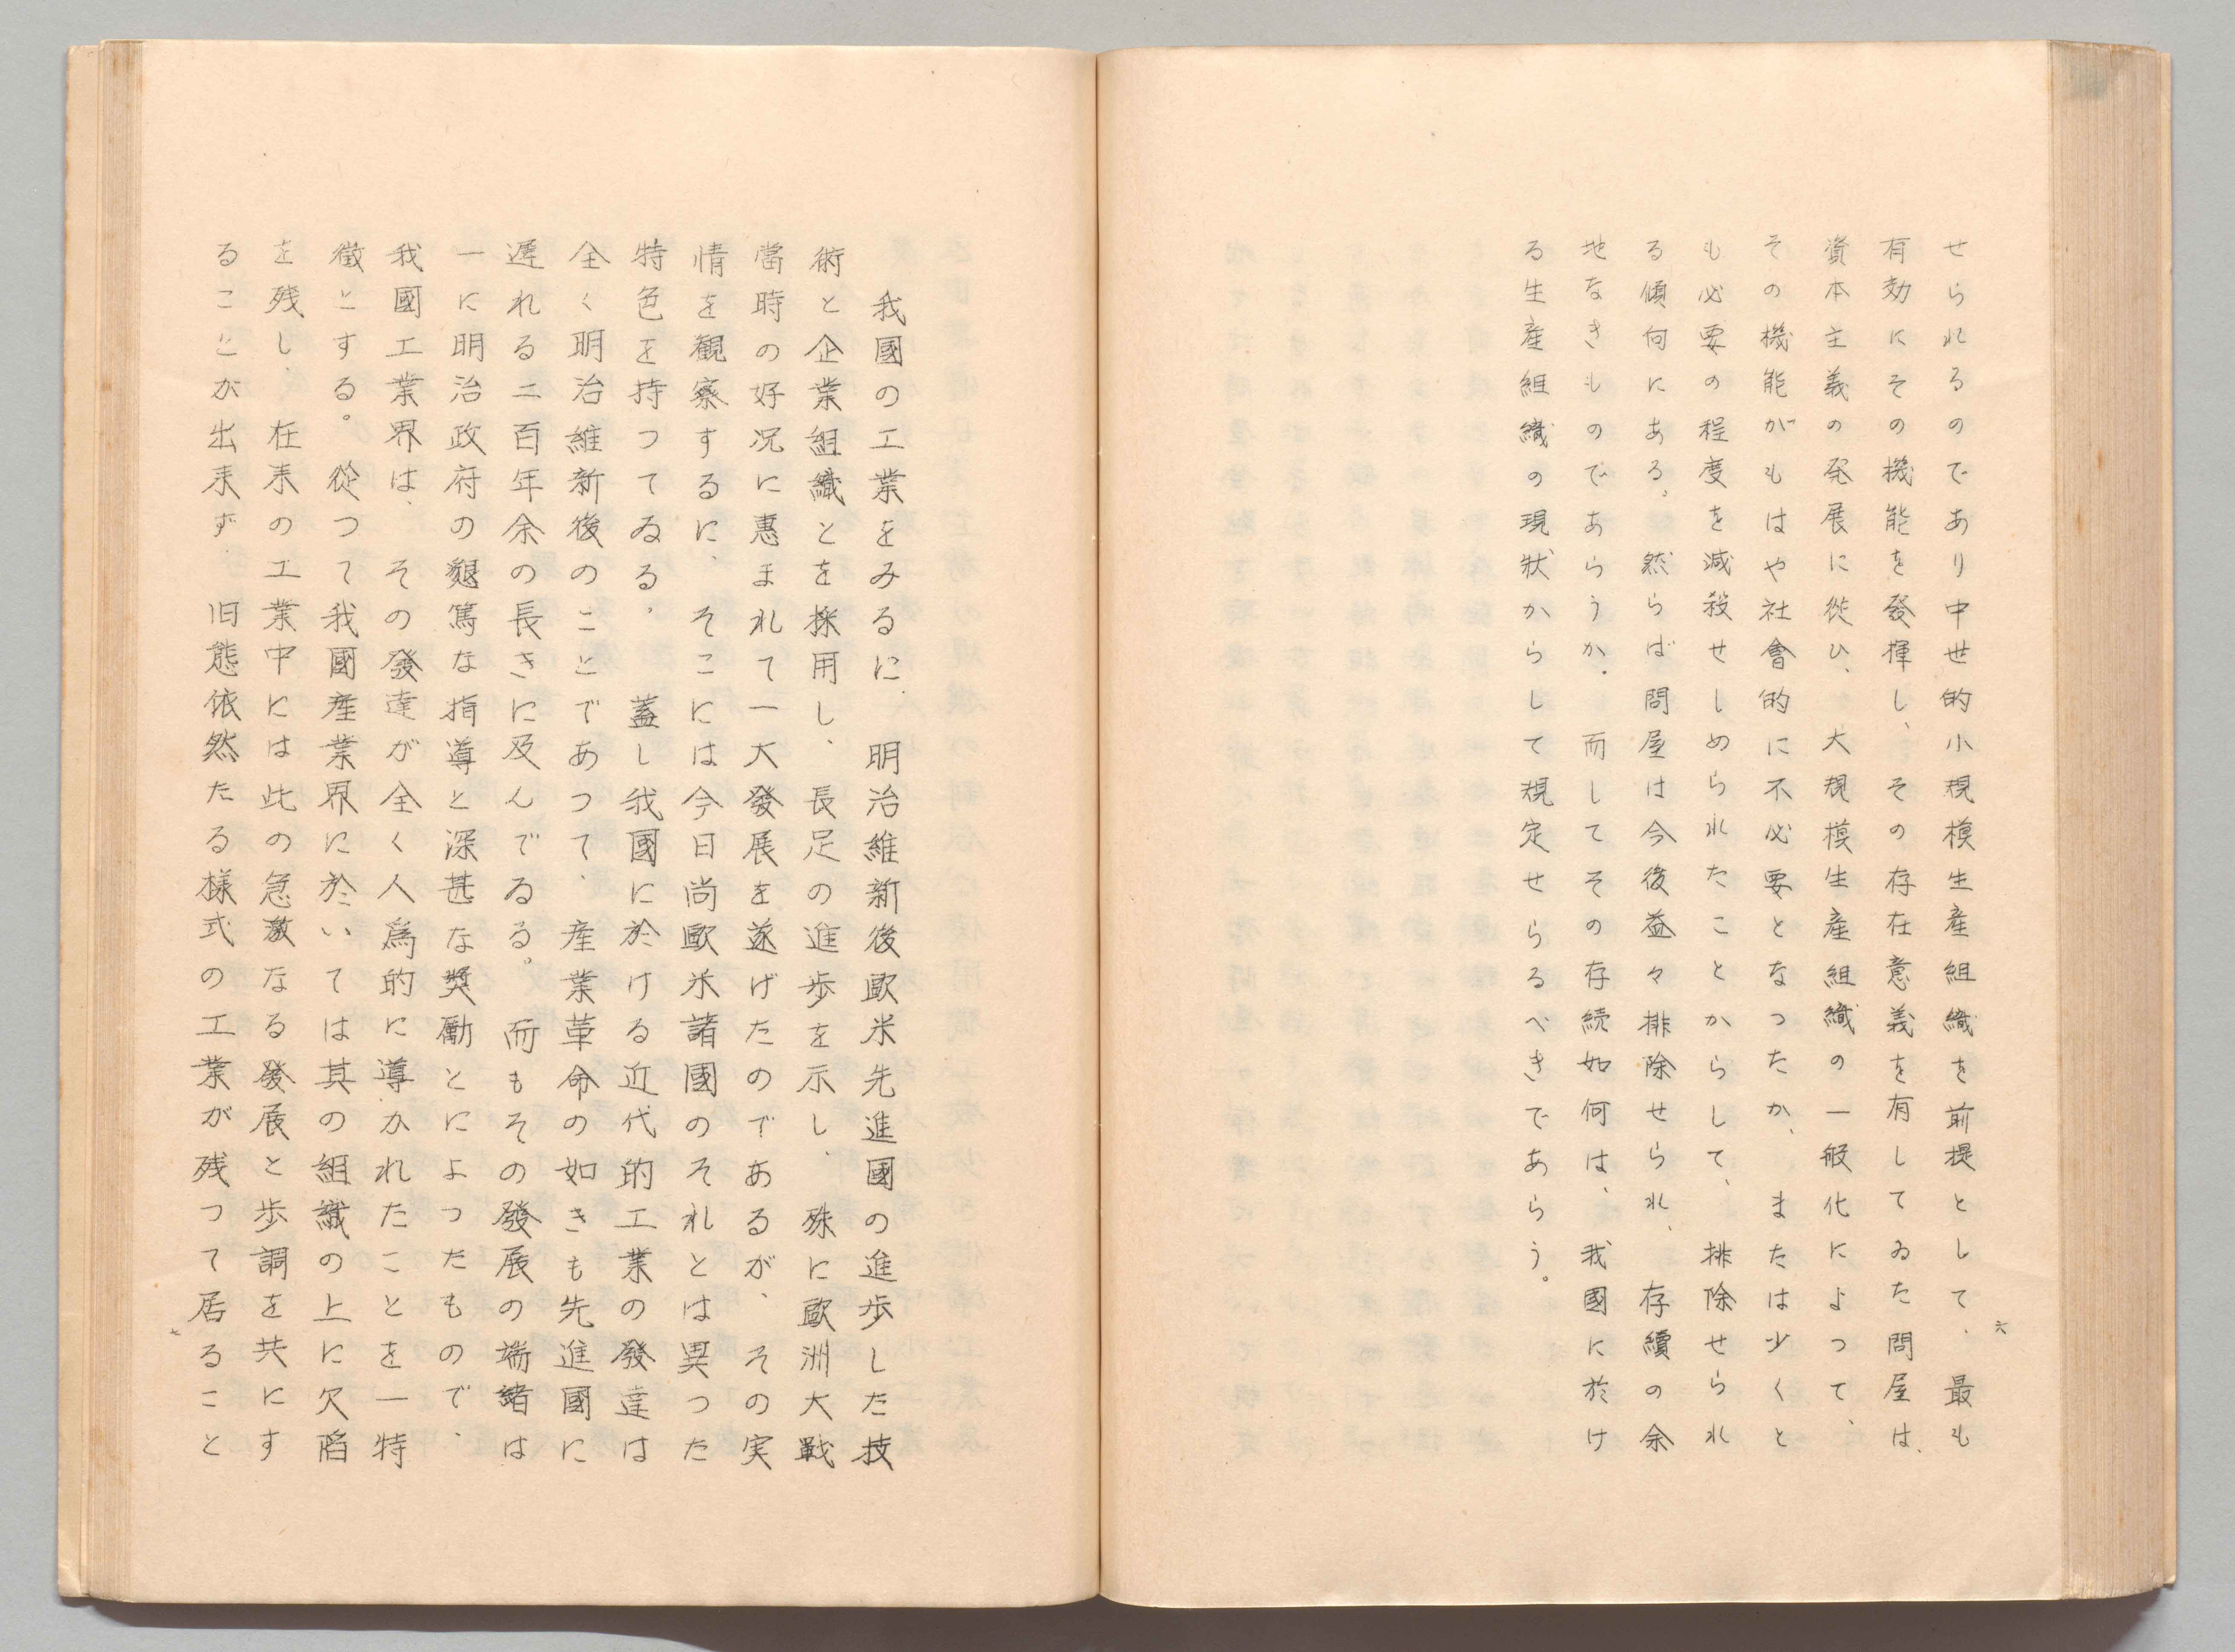 六
せられるのであり中世的小規模生産組織を前提として、最も
有効にその機能を發揮し、その存在意義を有してゐた問屋は、
資本主義の発展に從ひ、大規模生産組織の一般化によつて、
その機能がもはや社會的に不必要となつたか、または少くと
も必要の程度を減殺せしめられたことからして、排除せられ
る傾向にある。然らば問屋は今後益々排除せられ、存續の余
地なきものであらうか。而してその存続如何は、我國に於け
る生産組織の現狀からして規定せらるべきであらう。
我國の工業をみるに、明治維新後歐米先進國の進歩した技
術と企業組織とを採用し、長足の進歩を示し、殊に歐洲大戰
當時の好況に惠まれて一大發展を遂げたのであるが、その実
情を観察するに、そこには今日尚歐米諸國のそれとは異つた
特色を持つてゐる。蓋し我國に於ける近代的工業の發達は
全く明治維新後のことであつて、産業革命の如きも先進國に
遅れる二百年余の長きに及んでゐる。而もその發展の端緒は
一に明治政府の懇篤な指導と深甚な奬勵とによつたもので、
我國工業界は、その發達が全く人爲的に導かれたことを一特
徴とする。從つて我國産業界に於いては其の組織の上に欠陷
を残し、在来の工業中には此の急激なる發展と歩調を共にす
ることが出来ず、旧態依然たる様式の工業が残つて居ること
七